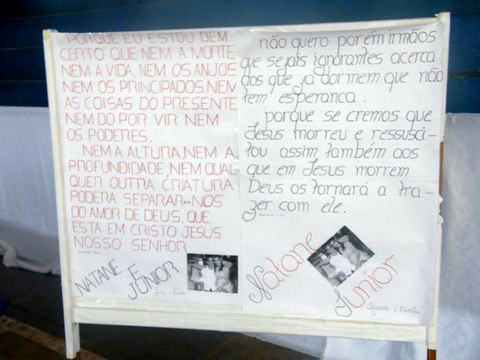 PORQUE EU ESTOU BEM
CERTO QUE NEM A MORTE
NEM A VIDA, NEM OS ANJOS
NEM OS PRINCIPADOS, NEM
AS COISAS DO PRESENTE
NEM DO POR VIR NEM
OS PODERES.
NEM A ALTURA, NEM A
PROFUNDIDADE, NEM QUAL
QUER OUTRA CRIATURA
PODERA SEPARAR-NOS
DO AMOR DE DEUS, QUE
ESTA EM CRISTO JESUS
NOSSO SENHOR
NATANE E JÚNIOR
não quero porém irmãos
que sejais ignorantes acerca
dos que já dormem que não
tem esperanca.
porque se cremos que
Jesus morreu e ressusci-
tou assim também aos
que em Jesus morrem
Deus os tornará a tra-
zer com ele.
Natane
Junior